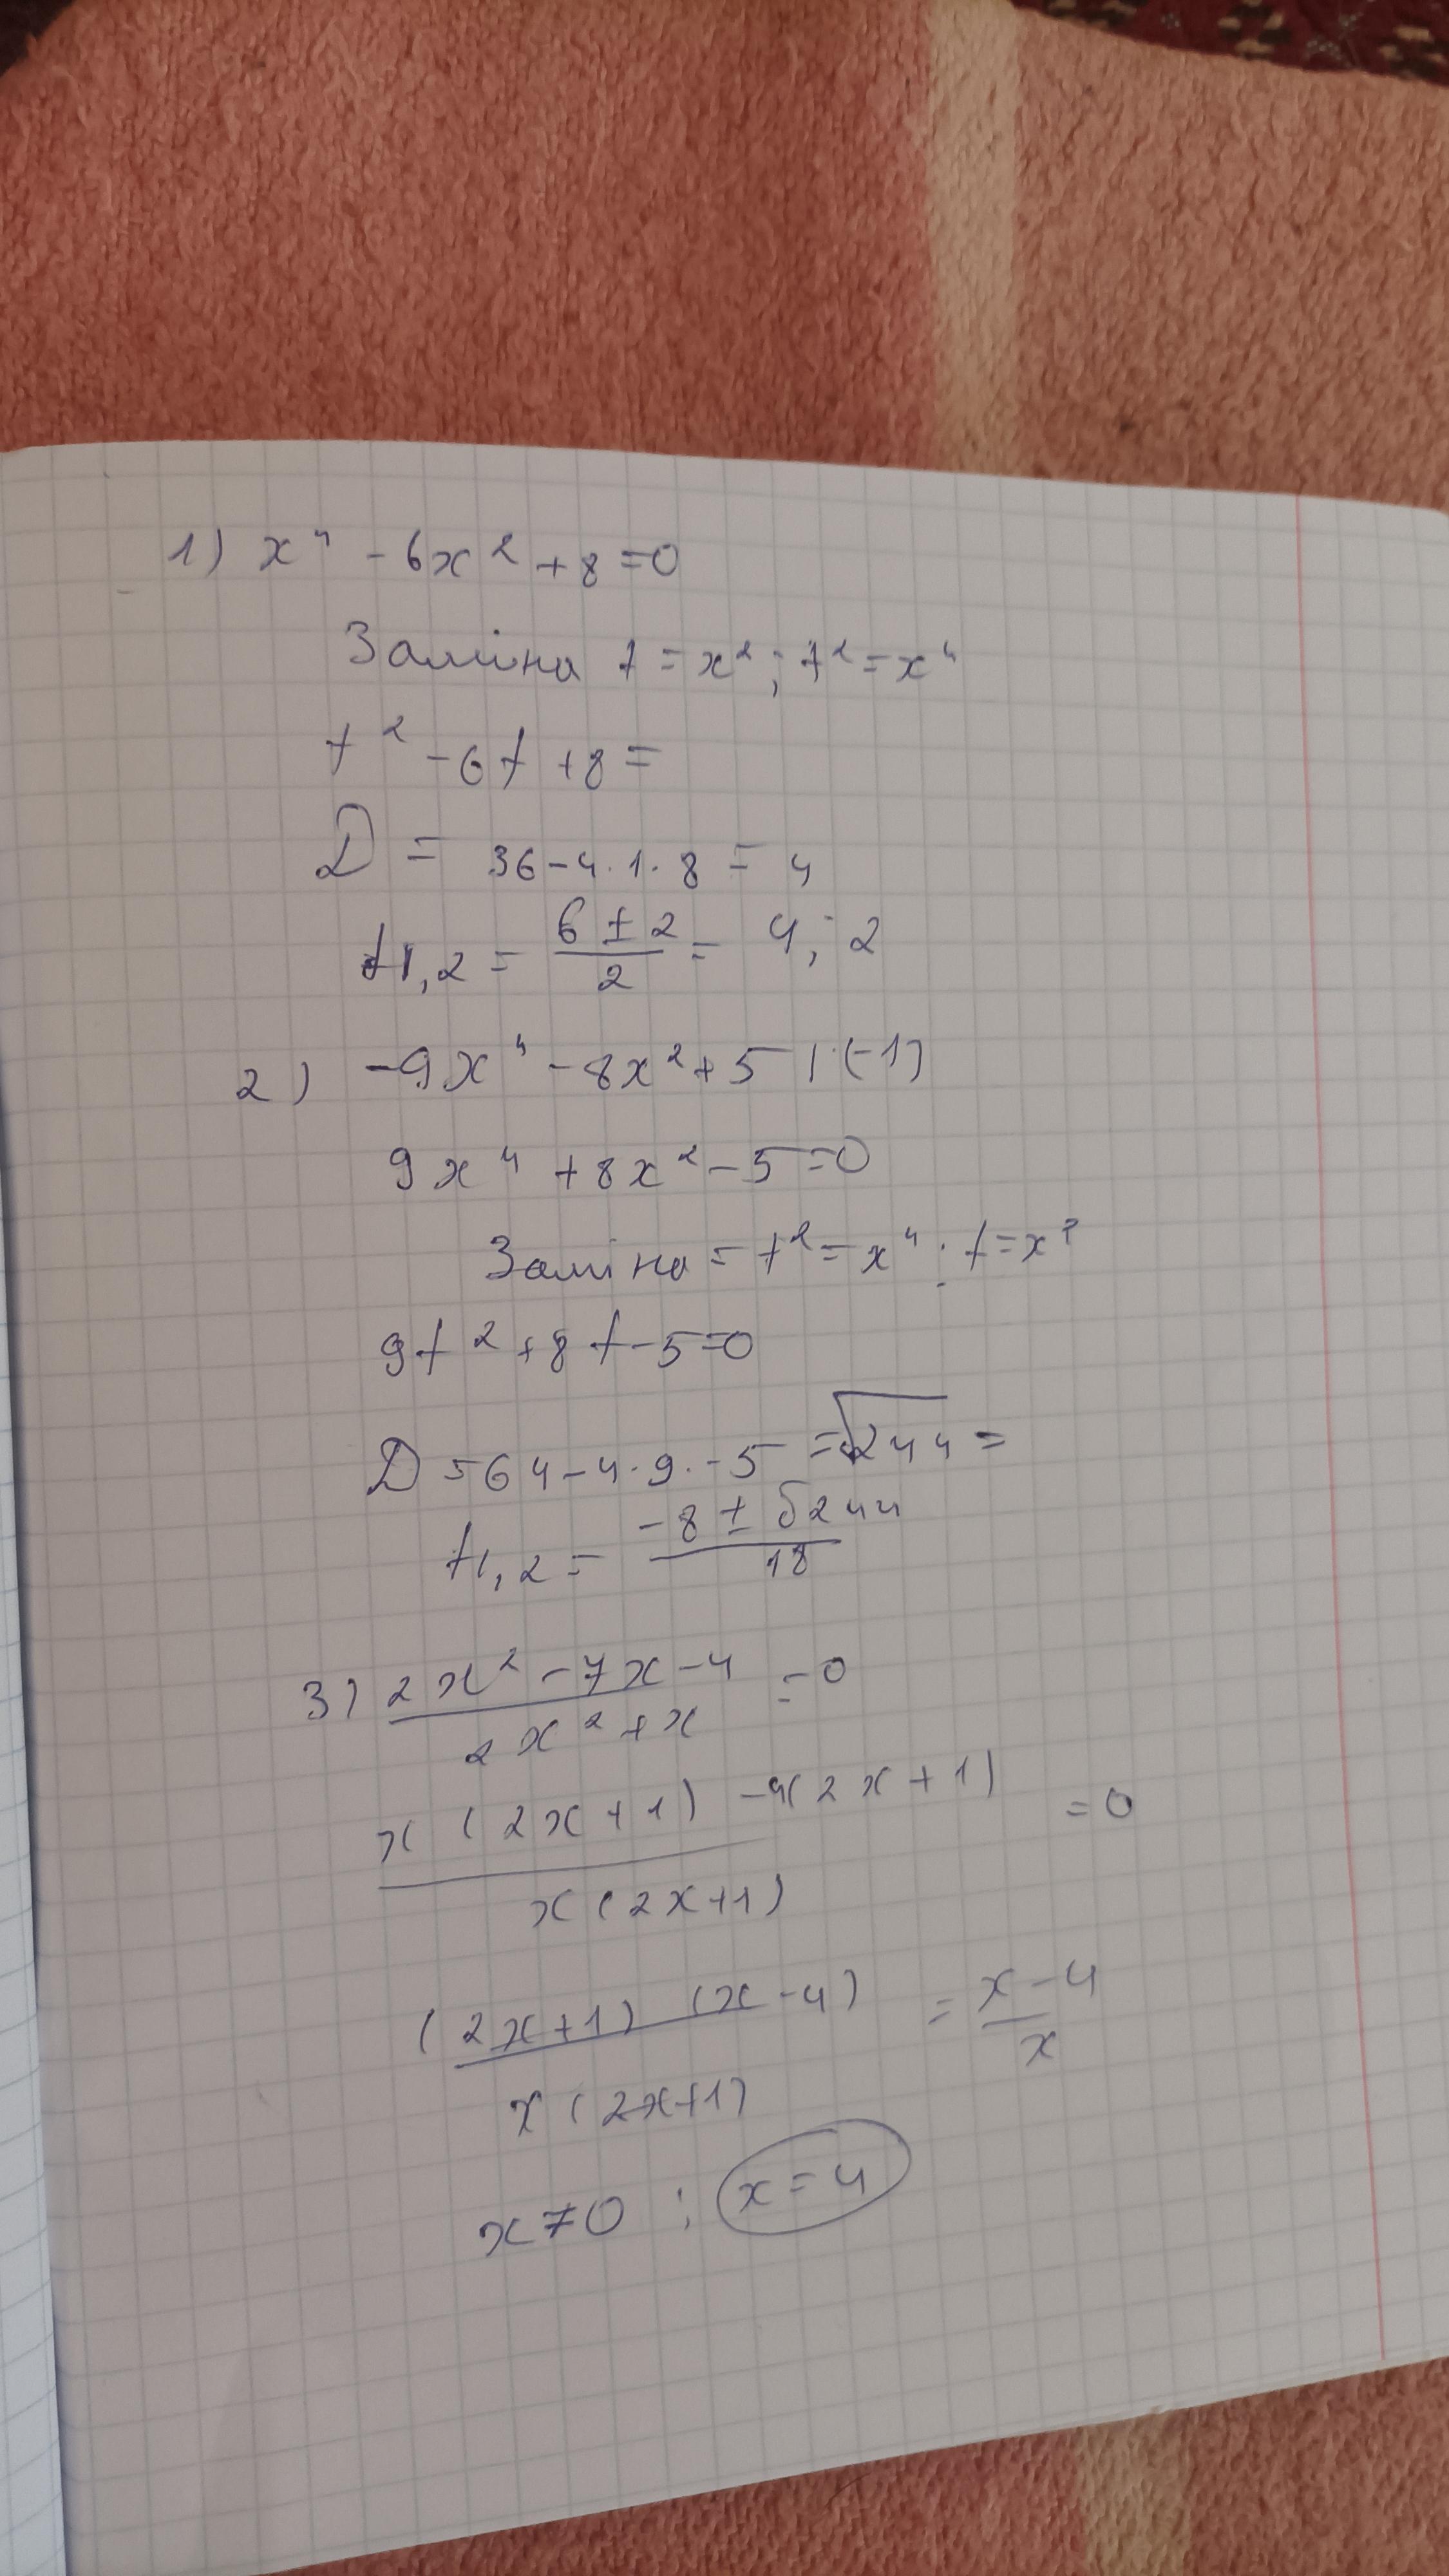 1) x⁴ - 6x² + 8 = 0
Заміна t = x² ; t² = x⁴
t² - 6t + 8 =
D = 36 - 4 · 1 · 8 = 4
t1,2 = (6 ± 2)/2 = 4; 2
2) -9x⁴ - 8x² + 5 | · (-1)
9x⁴ + 8x² - 5 = 0
Заміна = t² = x⁴ ; t = x²
9t² + 8t - 5 = 0
D = 64 - 4 · 9 · -5 = √244 =
t1,2 = (-8 ± √244)/18
3) (2x² - 7x - 4)/(2x² + x) = 0
(x(2x+1) - 4(2x+1))/(x(2x+1)) = 0
((2x+1)(x-4))/(x(2x+1)) = (x-4)/x
x ≠ 0 ; x = 4